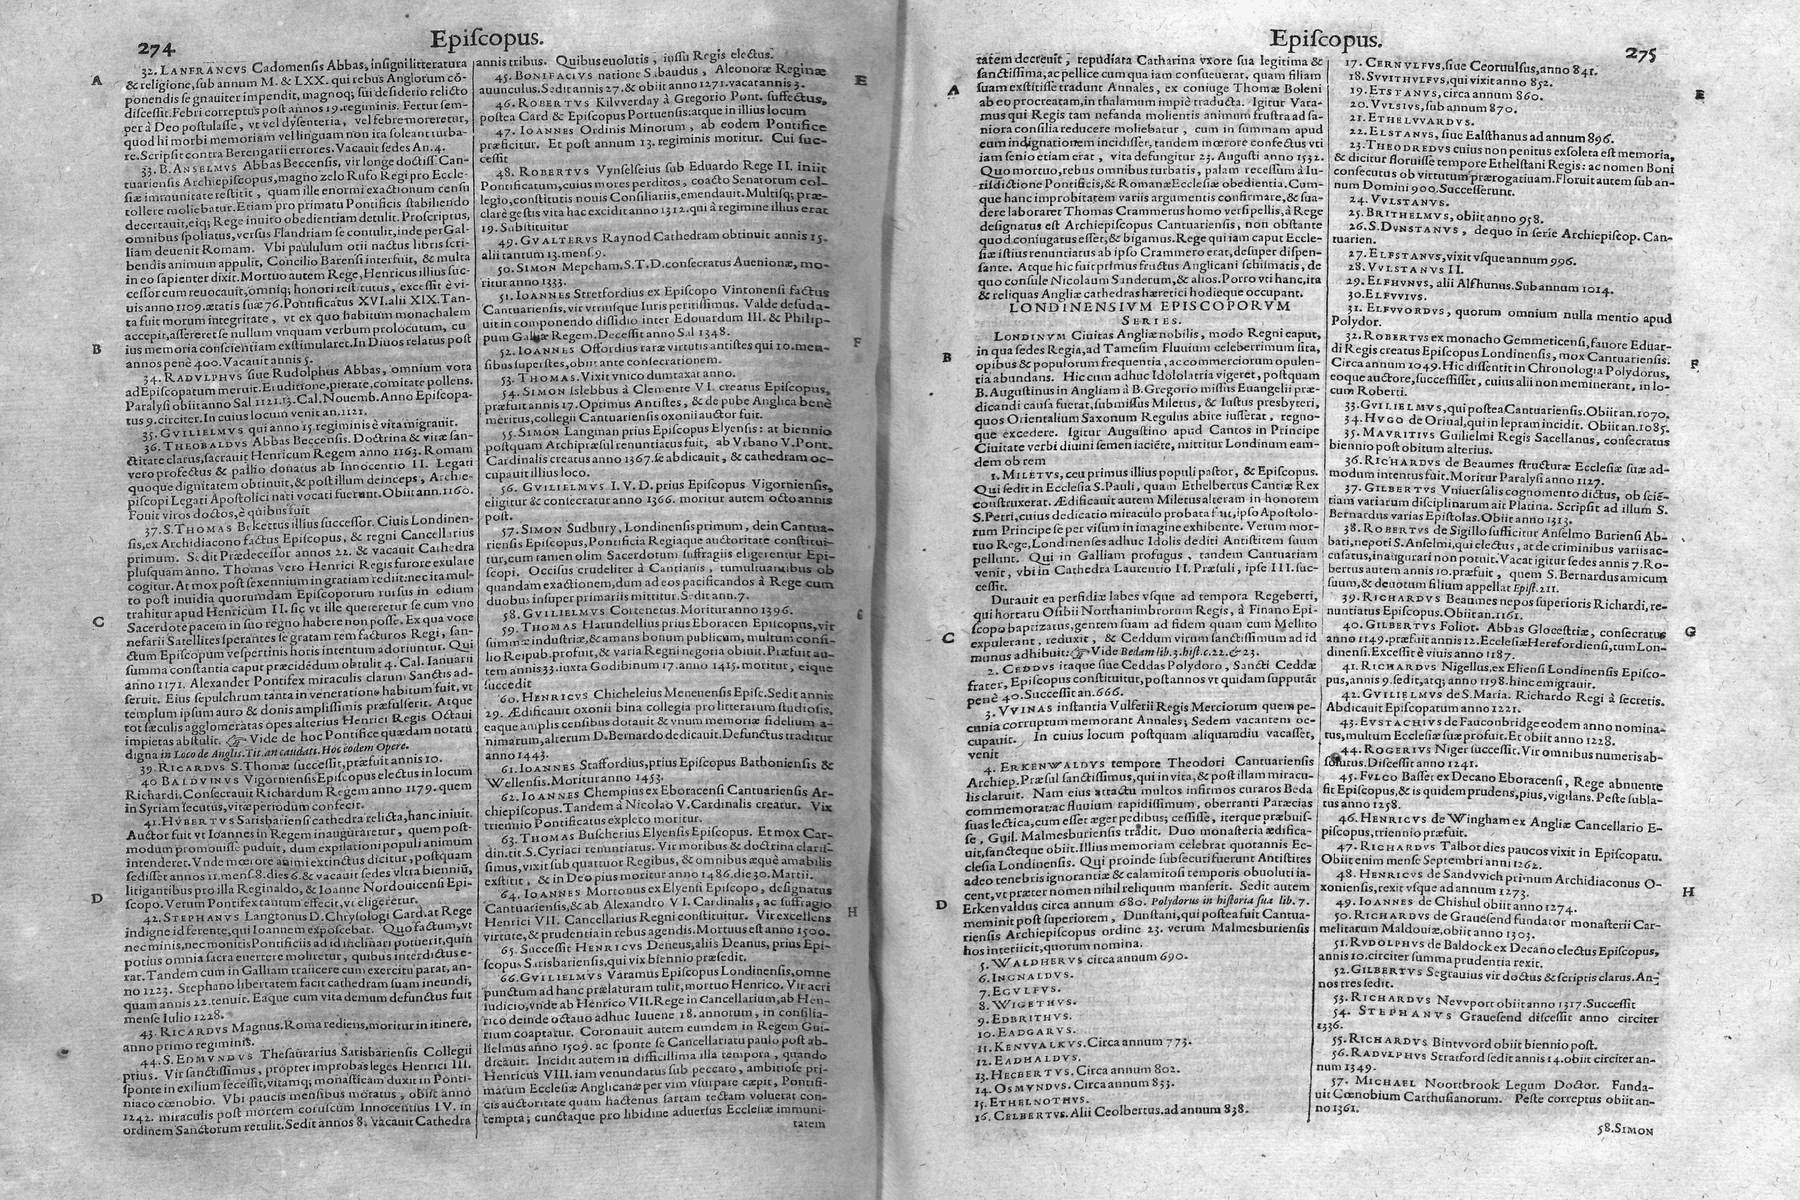 274
Epiſcopus.
32. LANFRANCVS Cadomenſis Abbas, inſigni litteratura
& religione, ſub annum M. & LXX. qui rebus Anglorum cō-
ponendis ſe gnauiter impendit, magnoq; ſui deſiderio relicto
diſceſſit. Febri correptus poſt annos 19. regiminis. Fertur ſem-
per à Deo poſtulaſſe, vt vel dyſenteria, vel febre moreretur,
quod hi morbi memoriam vel linguam non ita ſoleant turba-
re. Scripſit contra Berengarii errores. Vacauit ſedes An. 4.
33. B. ANSELMVS Abbas Beccenſis, vir longe doctiſſ. Can-
tuarienſis Archiepiſcopus, magno zelo Rufo Regi pro Eccle-
ſiæ immunitate reſtitit, quam ille enormi exactionum cenſu
tollere moliebatur. Etiam pro primatu Pontificis ſtabiliendo
decertauit, eiq; Rege inuito obedientiam detulit. Proſcriptus,
omnibus ſpoliatus, verſus Flandriam ſe contulit, inde per Gal-
liam deuenit Romam. Vbi paululum otii nactus libris ſcri-
bendis animum appulit, Concilio Barenſi interfuit, & multa
in eo ſapienter dixit. Mortuo autem Rege, Henricus illius ſuc-
ceſſor eum reuocauit, omniq; honori reſtitutus, exceſſit è vi-
uis anno 1109. ætatis ſuæ 76. Pontificatus XVI. alii XIX. Tan-
ta fuit morum integritate, vt ex quo habitum monachalem
accepit, aſſereret ſe nullum vnquam verbum prolocutum, cu
ius memoria conſcientiam exſtimularet. In Diuos relatus poſt
annos penè 400. Vacauit annis 5.
34. RADVLPHVS ſiue Rudolphus Abbas, omnium vota
ad Epiſcopatum meruit. Eruditione, pietate, comitate pollens.
Paralyſi obiit anno Sal 1121. 13. Cal. Nouemb. Anno Epiſcopa-
tus 9. circiter. In cuius locum venit an. 1121.
35. GVILIELMVS qui anno 15. regiminis è vita migrauit.
36. THEOBALDVS Abbas Beccenſis. Doctrina & vitæ ſan-
ctitate clarus, ſacrauit Henricum Regem anno 1163. Romam
vero profectus & pallio donatus ab Innocentio II. Legati
quoque dignitatem obtinuit, & poſt illum deinceps, Archie-
piſcopi Legati Apoſtolici nati vocati fuerunt. Obiit ann. 1160.
Fouit viros doctos, è quibus fuit
37. S. THOMAS Bekettus illius ſucceſſor. Ciuis Londinen-
ſis, ex Archidiacono factus Epiſcopus, & regni Cancellarius
primum. Sedit Prædeceſſor annos 22. & vacauit Cathedra
pluſquam anno. Thomas vero Henrici Regis furore exulare
cogitur. At mox poſt ſexennium in gratiam rediit: nec ita mul-
to poſt inuidia quorumdam Epiſcoporum rurſus in odium
trahitur apud Henricum II. ſic vt ille quereretur ſe cum vno
Sacerdote pacem in ſuo regno habere non poſſe. Ex qua voce
nefarii Satellites ſperantes ſe gratam rem facturos Regi, ſan-
ctum Epiſcopum veſpertinis horis intentum adoriuntur. Qui
ſumma conſtantia caput præcidēdum obtulit 4. Cal. Ianuarii
anno 1171. Alexander Pontifex miraculis clarum Sanctis ad-
ſeruit. Eius ſepulchrum tanta in veneratione habitum fuit, vt
templum ipſum auro & donis ampliſſimis præfulſerit. Atque
tot ſæculis agglomeratas opes alterius Henrici Regis Octaui
impietas abſtulit. ☞ Vide de hoc Pontifice quædam notatu
digna in Loco de Anglis. Tit. an caudati. Hoc eodem Opere.
39. RICARDVS S. Thomæ ſucceſſit, præfuit annis 10.
40 BALDVINVS Vigornienſis Epiſcopus electus in locum
Richardi. Conſecrauit Richardum Regem anno 1179. quem
in Syriam ſecutus, vitæ periodum confecit.
41. HVBERTVS Sarisbarienſi cathedra relicta, hanc iniuit.
Auctor fuit vt Ioannes in Regem inauguraretur, quem poſt-
modum promouiſſe puduit, dum expilationi populi animum
intenderet. Vnde mœrore animi extinctus dicitur, poſtquam
ſediſſet annos 11. menſ. 8. dies 6. & vacauit ſedes vltra bienniū,
litigantibus pro illa Reginaldo, & Ioanne Nordouicenſi Epi-
ſcopo. Verum Pontifex tantum effecit, vt eligeretur.
42. STEPHANVS Langtonus D. Chryſologi Card. at Rege
indigne id ferente, qui Ioannem expoſcebat. Quo factum, vt
nec minis, nec monitis Pontificiis ad id inclinari potuerit, quin
potius omnia ſacra euertere moliretur, quibus interdictus e-
rat. Tandem cum in Galliam traiicere cum exercitu parat, an-
no 1223. Stephano libertatem facit cathedram ſuam ineundi,
quam annis 22. tenuit. Eaque cum vita demum defunctus fuit
menſe Iulio 1228.
43. RICARDVS Magnus. Roma rediens, moritur in itinere,
anno primo regiminis.
44. S. EDMVNDVS Theſaurarius Satisbarienſis Collegii
prius. Vir ſanctiſſimus, propter improbas leges Henrici III.
ſponte in exilium ſeceſſit, vitamq; monaſticam duxit in Ponti-
niaco cœnobio. Vbi paucis menſibus moratus, obiit anno
1242. miraculis poſt mortem coruſcum Innocentius IV. in
ordinem Sanctorum retulit. Sedit annos 8. Vacauit Cathedra
annis tribus. Quibus euolutis, iuſſu Regis electus.
45. BONIFACIVS natione Sabaudus, Aleonoræ Reginæ
auunculus. Sedit annis 27. & obiit anno 1271. vacat annis 3.
46. ROBERTVS Kilvverday à Gregorio Pont. ſuffectus,
poſtea Card & Epiſcopus Portuenſis: atque in illius locum
47. IOANNES Ordinis Minorum, ab eodem Pontifice
præficitur. Et poſt annum 13. regiminis moritur. Cui ſuc-
ceſſit
48. ROBERTVS Vynſelſeius ſub Eduardo Rege II. iniit
Pontificatum, cuius mores perditos, coacto Senatorum col-
legio, conſtitutis nouis Conſiliariis, emendauit. Multiſq; præ-
clarè geſtis vita hac excidit anno 1312. qui à regimine illius erat
19. Subſtituitur
49. GVALTERVS Raynod Cathedram obtinuit annis 15.
alii tantum 13. menſ. 9.
50. SIMON Mepeham. S. T. D. conſecratus Auenionæ, mo-
ritur anno 1333.
51. IOANNES Stretfordius ex Epiſcopo Vintonenſi factus
Cantuarienſis, vir vtriuſque Iuris peritiſſimus. Valde deſuda-
uit in componendo diſſidio inter Edouardum III. & Philip-
pum Galliæ Regem. Deceſſit anno Sal 1348.
52. IOANNES Offordius raræ virtutis antiſtes qui 10. men-
ſibus ſuperſtes, obiit ante conſecrationem.
53. THOMAS. Vixit vnico duntaxat anno.
54. SIMON Islebbus à Clemente VI. creatus Epiſcopus,
præfuit annis 17. Optimus Antiſtes, & de pube Anglica benè
meritus, collegii Cantuarienſis oxonii auctor fuit.
55. SIMON Langman prius Epiſcopus Elyenſis: at biennio
poſtquam Archipræſul renuntiatus fuit, ab Vrbano V. Pont.
Cardinalis creatus anno 1367. ſe abdicauit, & cathedram oc-
cupauit illius loco.
56. GVILIELMVS I. V. D. prius Epiſcopus Vigornienſis,
eligitur & conſecratur anno 1366. moritur autem octo annis
poſt.
57. SIMON Sudbury, Londinenſis primum, dein Cantua-
rienſis Epiſcopus, Pontificia Regiaque auctoritate conſtitui-
tur, cum tamen olim Sacerdotum ſuffragiis eligerentur Epi-
ſcopi. Occiſus crudeliter à Cantianis, tumultuantibus ob
quandam exactionem, dum ad eos pacificandos à Rege cum
duobus inſuper primariis mittitur. Sedit ann. 7.
58. GVILIELMVS Cortenetus. Moritur anno 1396.
59. THOMAS Harundellius prius Eboracen Epiſcopus, vir
ſummæ induſtriæ, & amans bonum publicum, multum conſi-
lio Reipub. profuit, & varia Regni negotia obiuit. Præfuit au-
tem annis 33. iuxta Godibinum 17. anno 1415. moritur, eique
ſuccedit
60. HENRICVS Chicheleius Meneuenſis Epiſc. Sedit annis
29. Ædificauit oxonii bina collegia pro litteratum ſtudioſis,
eaque amplis cenſibus dotauit & vnum memoriæ fidelium a-
nimarum, alterum D. Bernardo dedicauit. Defunctus traditur
anno 1443.
61. IOANNES Staffordius, prius Epiſcopus Bathonienſis &
Wellenſis. Moritur anno 1453.
62. IOANNES Chempius ex Eboracenſi Cantuarienſis Ar-
chiepiſcopus. Tandem à Nicolao V. Cardinalis creatur. Vix
triennio Pontificatus expleto moritur.
63. THOMAS Buſcherius Elyenſis Epiſcopus. Et mox Car-
din. tit. S. Cyriaci renuntiatus. Vir moribus & doctrina clariſ-
ſimus, vixit ſub quattuor Regibus, & omnibus æquè amabilis
exſtitit, & in Deo pius moritur anno 1486. die 30. Martii.
64. IOANNES Mortonus ex Elyenſi Epiſcopo, deſignatus
Cantuarienſis, & ab Alexandro VI. Cardinalis, ac ſuffragio
Henrici VII. Cancellarius Regni conſtituitur. Vir excellens
virtute, & prudentia in rebus agendis. Mortuus eſt anno 1500.
65. Succeſſit HENRICVS Deneus, aliis Deanus, prius Epi-
ſcopus Sarisbarienſis, qui vix biennio præſedit.
66. GVILIELMVS Varamus Epiſcopus Londinenſis, omne
punctum ad hanc prælaturam tulit, mortuo Henrico. Vir acri
iudicio, vnde ab Henrico VII. Rege in Cancellarium, ab Hen-
rico deinde octauo adhuc Iuuene 18. annorum, in conſilia-
rium coaptatur. Coronauit autem eumdem in Regem Gui-
lielmus anno 1509. ac ſponte ſe Cancellariatu paulo poſt ab-
dicauit. Incidit autem in difficillima illa tempora, quando
Henricus VIII. iam venundatus ſub peccato, ambitioſe pri-
matum Eccleſiæ Anglicanæ per vim vſurpare cœpit, Pontifi-
cis auctoritate quam hactenus ſartam tectam voluerat con-
tempta; cunctaque pro libidine aduerſus Eccleſiæ immuni-
tatem
A
B
C
D
E
F
G
H
Epiſcopus.
275
tatem decreuit, repudiata Catharina vxore ſua legitima &
ſanctiſſima, ac pellice cum qua iam conſueuerat, quam filiam
ſuam exſtitiſſe tradunt Annales, ex coniuge Thomæ Boleni
ab eo procreatam, in thalamum impiè traducta. Igitur Vara-
mus qui Regis tam nefanda molientis animum fruſtra ad ſa-
niora conſilia reducere moliebatur, cum in ſummam apud
eum indignationem incidiſſet, tandem mœrore confectus vti
iam ſenio etiam erat, vita defungitur 23. Auguſti anno 1532.
Quo mortuo, rebus omnibus turbatis, palam receſſum à Iu-
riſdictione Pontificis, & Romanæ Eccleſiæ obedientia. Cum-
que hanc improbitatem variis argumentis confirmare, & ſua-
dere laboraret Thomas Crammerus homo verſipellis, à Rege
deſignatus eſt Archiepiſcopus Cantuarienſis, non obſtante
quod coniugatus eſſet, & bigamus. Rege qui iam caput Eccle-
ſiæ iſtius renuntiatus ab ipſo Crammero erat, deſuper diſpen-
ſante. Atque hic fuit primus fructus Anglicani ſchiſmatis, de
quo conſule Nicolaum Sanderum, & alios. Porro vti hanc, ita
& reliquas Angliæ cathedras hæretici hodieque occupant.
LONDINENSIVM EPISCOPORVM
SERIES.
LONDINVM Ciuitas Angliæ nobilis, modo Regni caput,
in qua ſedes Regia, ad Tameſim Fluuium celeberrimum ſita,
opibus & populorum frequentia, ac commerciorum opulen-
tia abundans. Hic cum adhuc Idololatria vigeret, poſtquam
B. Auguſtinus in Angliam à B. Gregorio miſſus Euangelii præ-
dicandi cauſa fuerat, ſubmiſſus Miletus, & Iuſtus presbyteri,
quos Orientalium Saxonum Regulus abire iuſſerat, regno-
que excedere. Igitur Auguſtino apud Cantos in Principe
Ciuitate verbi diuini ſemen iaciēte, mittitur Londinum eam-
dem ob rem
1. MILETVS, ceu primus illius populi paſtor, & Epiſcopus.
Qui ſedit in Eccleſia S. Pauli, quam Ethelbertus Cantiæ Rex
conſtruxerat. Ædificauit autem Miletus alteram in honorem
S. Petri, cuius dedicatio miraculo probata fuit, ipſo Apoſtolo-
rum Principe ſe per viſum in imagine exhibente. Verum mor-
tuo Rege, Londinenſes adhuc Idolis dediti Antiſtitem ſuum
pellunt. Qui in Galliam profugus, tandem Cantuariam
venit, vbi in Cathedra Laurentio II. Præſuli, ipſe III. ſuc-
ceſſit.
Durauit ea perfidiæ labes vſque ad tempora Regeberti,
qui hortatu Oſibii Northanimbrorum Regis, à Finano Epi-
ſcopo baptizatus, gentem ſuam ad fidem quam cum Mellito
expulerant, reduxit, & Ceddum virum ſanctiſſimum ad id
munus adhibuit: ☞ Vide Bedam lib. 3. hiſt. c. 22. & 23.
2. CEDDVS itaque ſiue Ceddas Polydoro, Sancti Ceddæ
frater, Epiſcopus conſtituitur, poſt annos vt quidam ſupputāt
penè 40. Succeſſit an. 666.
3. VVINAS inſtantia Vulferii Regis Merciorum quem pe-
cunia corruptum memorant Annales; Sedem vacantem oc-
cupauit. In cuius locum poſtquam aliquamdiu vacaſſet,
venit
4. ERKENWALDVS tempore Theodori Cantuarienſis
Archiep. Præſul ſanctiſſimus, qui in vita, & poſt illam miracu-
lis claruit. Nam eius attactu multos infirmos curatos Beda
commemorat: ac fluuium rapidiſſimum, oberranti Parœcias
ſuas lectica, cum eſſet æger pedibus; ceſſiſſe, iterque præbuiſ-
ſe, Guil. Malmesburienſis tradit. Duo monaſteria ædifica-
uit, ſancteque obiit. Illius memoriam celebrat quotannis Ec-
cleſia Londinenſis. Qui proinde ſubſecuti fuerunt Antiſtites
adeo tenebris ignorantiæ & calamitoſi temporis obuoluti ia-
cent, vt præter nomen nihil reliquum manſerit. Sedit autem
Erkenvaldus circa annum 680. Polydorus in hiſtoria ſua lib. 7.
meminit poſt ſuperiorem, Dunſtani, qui poſtea fuit Cantua-
rienſis Archiepiſcopus ordine 23. verum Malmesburienſis
hos interiicit, quorum nomina.
5. WALDHERVS circa annum 690.
6. INGNALDVS.
7. EGVLFVS.
8. WIGETHVS.
9. EDBRITHVS.
10. EADGARVS.
11. KENVVALKVS. Circa annum 773.
12. EADHALDVS.
13. HECBERTVS. Circa annum 802.
14. OSMVNDVS. Circa annum 833.
15. ETHELNOTHVS.
16. CELBERTVS. Alii Ceolbertus, ad annum 838.
17. CERNVLFVS, ſiue Ceoruulſus, anno 841.
18. SVVITHVLFVS, qui vixit anno 852.
19. ETSTANVS, circa annum 860.
20. VVLSIVS, ſub annum 870.
21. ETHELVVARDVS.
22. ELSTANVS, ſiue Ealſthanus ad annum 896.
23. THEODREDVS cuius non penitus exſoleta eſt memoria,
& dicitur floruiſſe tempore Ethelſtani Regis: ac nomen Boni
conſecutus ob virtutum prærogatiuam. Floruit autem ſub an-
num Domini 900. Succeſſerunt.
24. VVLSTANVS.
25. BRITHELMVS, obiit anno 958.
26. S. DVNSTANVS, de quo in ſerie Archiepiſcop. Can-
tuarien.
27. ELFSTANVS, vixit vſque annum 996.
28. VVLSTANVS II.
29. ELFHVNVS, alii Alfhunus. Sub annum 1014.
30. ELFVVIVS.
31. ELFVVORDVS, quorum omnium nulla mentio apud
Polydor.
32. ROBERTVS ex monacho Gemmeticenſi, fauore Eduar-
di Regis creatus Epiſcopus Londinenſis, mox Cantuarienſis.
Circa annum 1049. Hic diſſentit in Chronologia Polydorus,
eoque auctore, ſucceſſiſſet, cuius alii non meminerant, in lo-
cum Roberti.
33. GVILIELMVS, qui poſtea Cantuarienſis. Obiit an. 1070.
34. HVGO de Oriual, qui in lepram incidit. Obiit an. 1085.
35. MAVRITIVS Guilielmi Regis Sacellanus, conſecratus
biennio poſt obitum alterius.
36. RICHARDVS de Beaumes ſtructuræ Eccleſiæ ſuæ ad-
modum intentus fuit. Moritur Paralyſi anno 1127.
37. GILBERTVS Vniuerſalis cognomento dictus, ob ſciē-
tiam variarum diſciplinarum ait Platina. Scripſit ad illum S.
Bernardus varias Epiſtolas. Obiit anno 1313.
38. ROBERTVS de Sigillo ſufficitur Anſelmo Burienſi Ab-
bati, nepoti S. Anſelmi, qui electus, at de criminibus variis ac-
cuſatus, inaugurari non potuit. Vacat igitur ſedes annis 7. Ro-
bertus autem annis 10. præfuit, quem S. Bernardus amicum
ſuum, & deuotum filium appellat Epiſt. 211.
39. RICHARDVS Beaumes nepos ſuperioris Richardi, re-
nuntiatus Epiſcopus. Obiit an. 1161.
40. GILBERTVS Foliot. Abbas Gloceſtriæ, conſecratus
anno 1149. præfuit annis 12. Eccleſiæ Herefordienſi, tum Lon-
dinenſi. Exceſſit è viuis anno 1187.
41. RICHARDVS Nigellus, ex Elienſi Londinenſis Epiſco-
pus, annis 9. ſedit, atq; anno 1198. hinc emigrauit.
42. GVILIELMVS de S. Maria. Richardo Regi à ſecretis.
Abdicauit Epiſcopatum anno 1221.
43. EVSTACHIVS de Fauconbridge eodem anno nomina-
tus, multum Eccleſiæ ſuæ profuit. Et obiit anno 1228.
44. ROGERIVS Niger ſucceſſit. Vir omnibus numeris ab-
ſolutus. Diſceſſit anno 1241.
45. FVLCO Baſſet ex Decano Eboracenſi, Rege abnuente
fit Epiſcopus, & is quidem prudens, pius, vigilans. Peſte ſubla-
tus anno 1258.
46. HENRICVS de Wingham ex Angliæ Cancellario E-
piſcopus, triennio præfuit.
47. RICHARDVS Talbot dies paucos vixit in Epiſcopatu.
Obiit enim menſe Septembri anni 1262.
48. HENRICVS de Sandvvich primum Archidiaconus O-
xonienſis, rexit vſque ad annum 1273.
49. IOANNES de Chishul obiit anno 1274.
50. RICHARDVS de Graueſend fundator monaſterii Car-
melitarum Maldouiæ, obiit anno 1303.
51. RVDOLPHVS de Baldock ex Decano electus Epiſcopus,
annis 10. circiter ſumma prudentia rexit.
52. GILBERTVS Segrauius vir doctus & ſcriptis clarus. An-
nos tres ſedit.
53. RICHARDVS Nevvport obiit anno 1317. Succeſſit
54. STEPHANVS Graueſend diſceſſit anno circiter
1336.
55. RICHARDVS Bintvvord obiit biennio poſt.
56. RADVLPHVS Stratford ſedit annis 14. obiit circiter an-
num 1349.
57. MICHAEL Noortbrook Legum Doctor. Funda-
uit Cœnobium Carthuſianorum. Peſte correptus obiit an-
no 1361.
58. SIMON
A
B
C
D
E
F
G
H